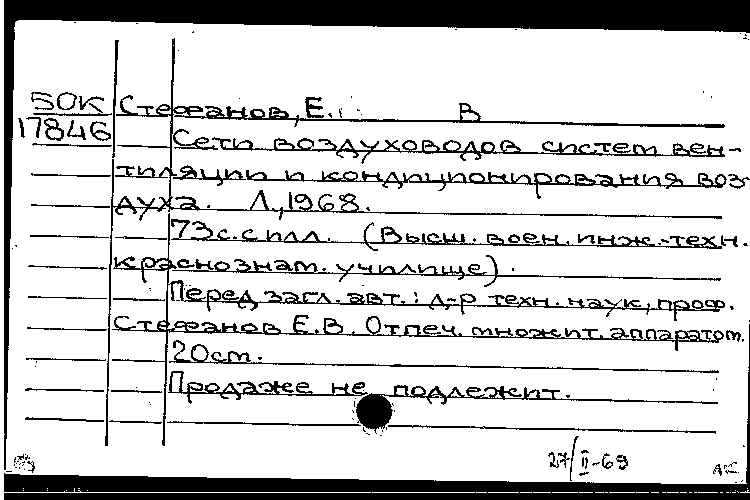 БОК Стефанов, Е. В
17846 Сети воздуховодов систем вен-
тиляции и кондиционирования воз-
духа. Л., 1968.
73с. с илл. (Высш. воен. инж.-техн.
краснознам. училище).
Перед загл. авт.: д-р техн. наук, проф.
Стефанов Е.В. Отпеч. множит. аппаратом.
20см.
Продаже не подлежит.
27/II-69
АК